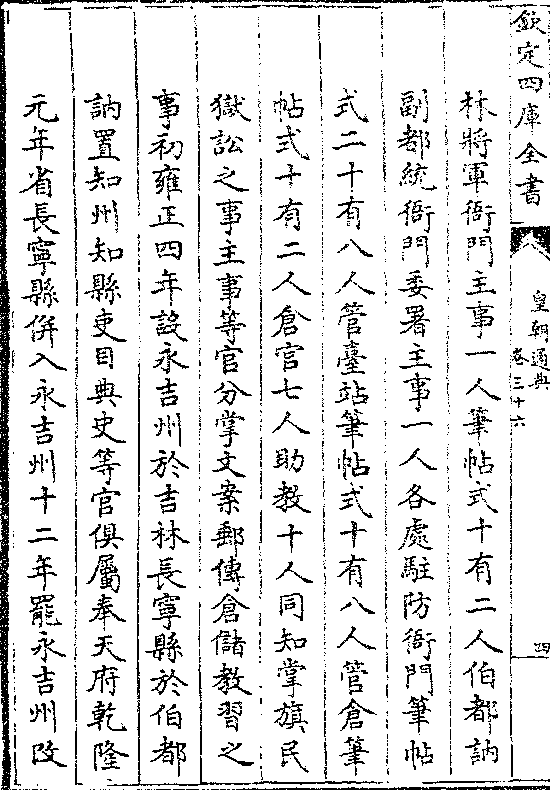 欽定四庫全書
皇朝通典
卷三十六
四
林將軍衙門主事一人筆帖式十有二人伯都訥
副都統衙門委署主事一人各處駐防衙門筆帖
式二十有八人管臺站筆帖式十有八人管倉筆
帖式十有二人倉官七人助教十人同知掌旗民
獄訟之事主事等官分掌文案郵傳倉儲教習之
事初雍正四年設永吉州於吉林長寧縣於伯都
訥置知州知縣吏目典史等官俱屬奉天府乾隆
元年省長寧縣併入永吉州十二年罷永吉州改